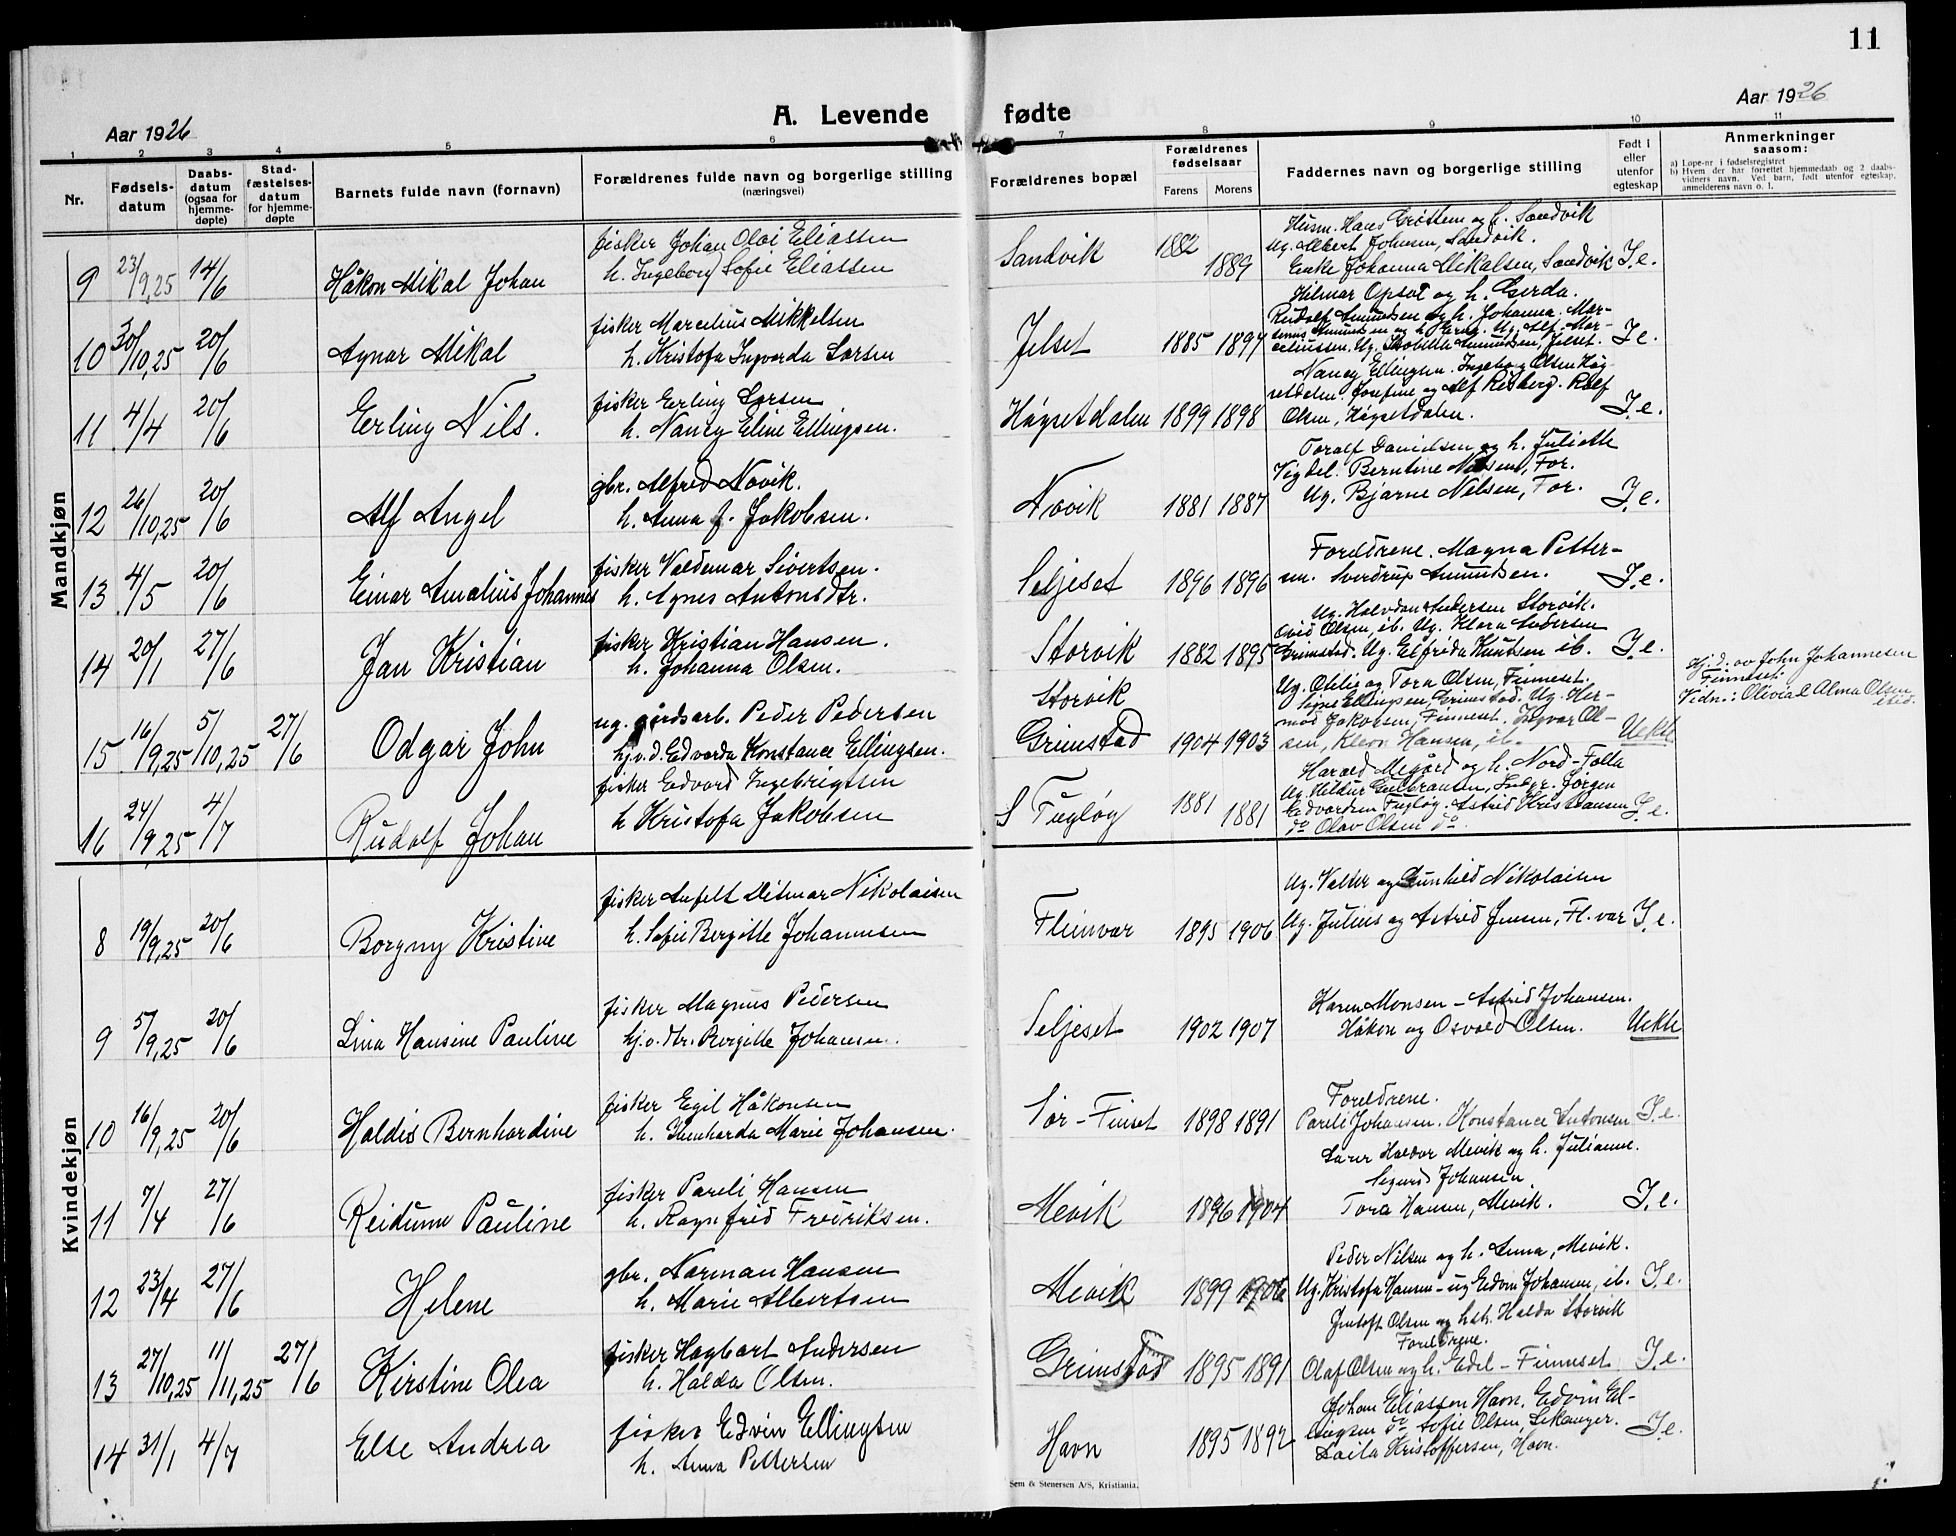 11
Aar 1926
A. Levende fødte
Aar 1926
1 2 3 4 5 6 7 8 9 10 11
Nr.
Fødsels-
datum
Daabs-
datum
(ogsaa for
hjemme-
døpte)
Stad-
fæstelses-
datum
for hjemme-
døpte
Barnets fulde navn (fornavn)
Forældrenes fulde navn og borgerlige stilling
(næringsvei)
Forældrenes bopæl
Forældrenes
fødselsaar
Farens Morens
Faddernes navn og borgerlige stilling
Født i
eller
utenfor
egteskap
Anmerkninger
saasom:
a) Løpe-nr i fødselsregistret
b) Hvem der har forrettet hjemmedaab og 2 daabs-
vidners navn. Ved barn, født utenfor egteskap,
anmelderens navn o. l.
Mandkjøn
9 23/9,25 14/6 Håkon Mikal Johan
fisker Johan Oloi Eliassen
h. Ingeborg Sofie Eliassen
Sandvik 1882 1889
Husm. Hans Grøttem og h. Sandvik
Ug. Albert Johnsen, Sandvik.
Enke Johanna Mikalsen, Sandvik I.e.
10 30/10,25 20/6 Agnar Mikal
fisker Marcelius Mikkelsen
h. Kristofa Ingvarda Larsen
Jelset 1885 1894
Hilmar Opsøt og h. Gerda.
Rudolf Amundsen og h. Johanna. Mar-
celiussen. Ug. Amundsen, Jelset. I.e.
11 4/4 20/6 Erling Nils.
fisker Erling Larsen
h. Nancy Eline Ellingsen.
Høgsetdalen 1899 1898
Nancy Ellingsen. Ingeborg Olsen Høg-
setdalen. Josefine og Alf Risberg. Rolf
Olsen, Høgsetdalen. I.e.
12 26/10,25 20/6 Alf Angel
gbr. Alfred Novik.
h. Anna J. Jakobsen.
Novik 1881 1887
Toralf Danielsen og h. Juliette
Vigdel. Berntine Nilsen, For.
Ug. Bjarne Nelsen, For. I.e.
13 4/5 20/6 Einar Amalius Johannes
fisker Valdemar Sivertsen.
h. Agnes Antonsdtr.
Seljeset 1896 1896
Foreldrene. Magna Petter-
sen. Sverdrup Amundsen. I.e.
14 20/1 27/6 Jan Kristian
fisker Kristian Hansen.
h. Johanna Olsen.
Storvik 1882 1895
Ug. Halvdan Andersen Storvik.
Ovid Olsen, ib. Ug. Klara
Grimstad. Ug. Elfrida Knutsen ib. I.e.
15 16/9,25 5/10,25 27/6 Odgar John
ug. gårdsarb. Peder Pedersen
hj.v.d. Edvarda Konstance Ellingsen.
Storvik
Grimstad 1904 1903
Ug. Otilie og Tora Olsen, Finneset.
Signe Ellingsen, Grimstad. Ug. Her-
mod Jakobsen, Finneset. Ingvar Ol-
sen, Kleon Hansen, ib. Uekte
Hj. d. av John Johannesen
Finneset.
Vidn.: Olivia & Alma Olsen
16 24/9,25 4/7 Rudolf Johan
fisker Edvard Ingebrigtsen
h Kristofa Jakobsen
S Fugløy 1881 1881
Harald Megård og h. Nord-Folla
Ug. Hildur Gulbransen, Jørgen
Edvardsen Fugløy. Astrid Kristiansen
do Olav Olsen do. I.e.
Kvindekjøn
8 19/9,25 20/6 Borgny Kristine
fisker Anfelt Ditmar Nikolaisen
h. Sofie Bergitte Johannesen
Fleinvær 1895 1906
Ug. Valter og Gunhild Nikolaisen
Ug. Julius og Astrid Jensen, Fl.vær I.e.
9 5/9,25 20/6 Lina Hansine Pauline
fisker Magnus Pedersen
hj.v. dtr. Birgitte Johansen.
Seljeset 1902 1907
Karen Monsen - Astrid Johansen.
Håkon og Osvald Olsen. Uekte
10 16/9,25 20/6 Haldis Bernhardine
fisker Egil Håkonsen
h. Marie Johansen.
Sør-Finset 1898 1891
Foreldrene.
Pareli Johansen. Konstance Antonsen I.e.
11 7/4 27/6 Reidunn Pauline
fisker Pareli Hansen
h. Ragnfrid Fredriksen.
Mevik 1896 1904
Lærer Haldor Mevik og h. Julianne.
Sigurd Johansen.
Tora Hansen, Mevik. I.e.
12 23/4 27/6 Helene
gbr. Norman Hansen
h. Marie Albertsen
Mevik 1899 1906
Peder Nilsen og h. Anna, Mevik.
Ug. Kristofa Hansen - ug Edvin Johansen, ib. I.e.
13 27/10,25 11/11,25 27/6 Kirstine Olea
fisker Hagbart Andersen
h. Halda Olsen.
Grimstad 1895 1891
Jentoft Olsen og Halda Storvik
Foreldrene.
Olaf Olsen og h. Edel - Finneset I.e.
14 31/1 4/7 Else Andrea
fisker Edvin Ellingsen
h. Anna Pettersen
Havn 1895 1892
Johan Eliassen Havn. Edvin El-
lingsen do Sofie Olsen, Lekanger.
Laila Kristoffersen, Havn. I.e.
Sem & Stenersen A/S, Kristiania.